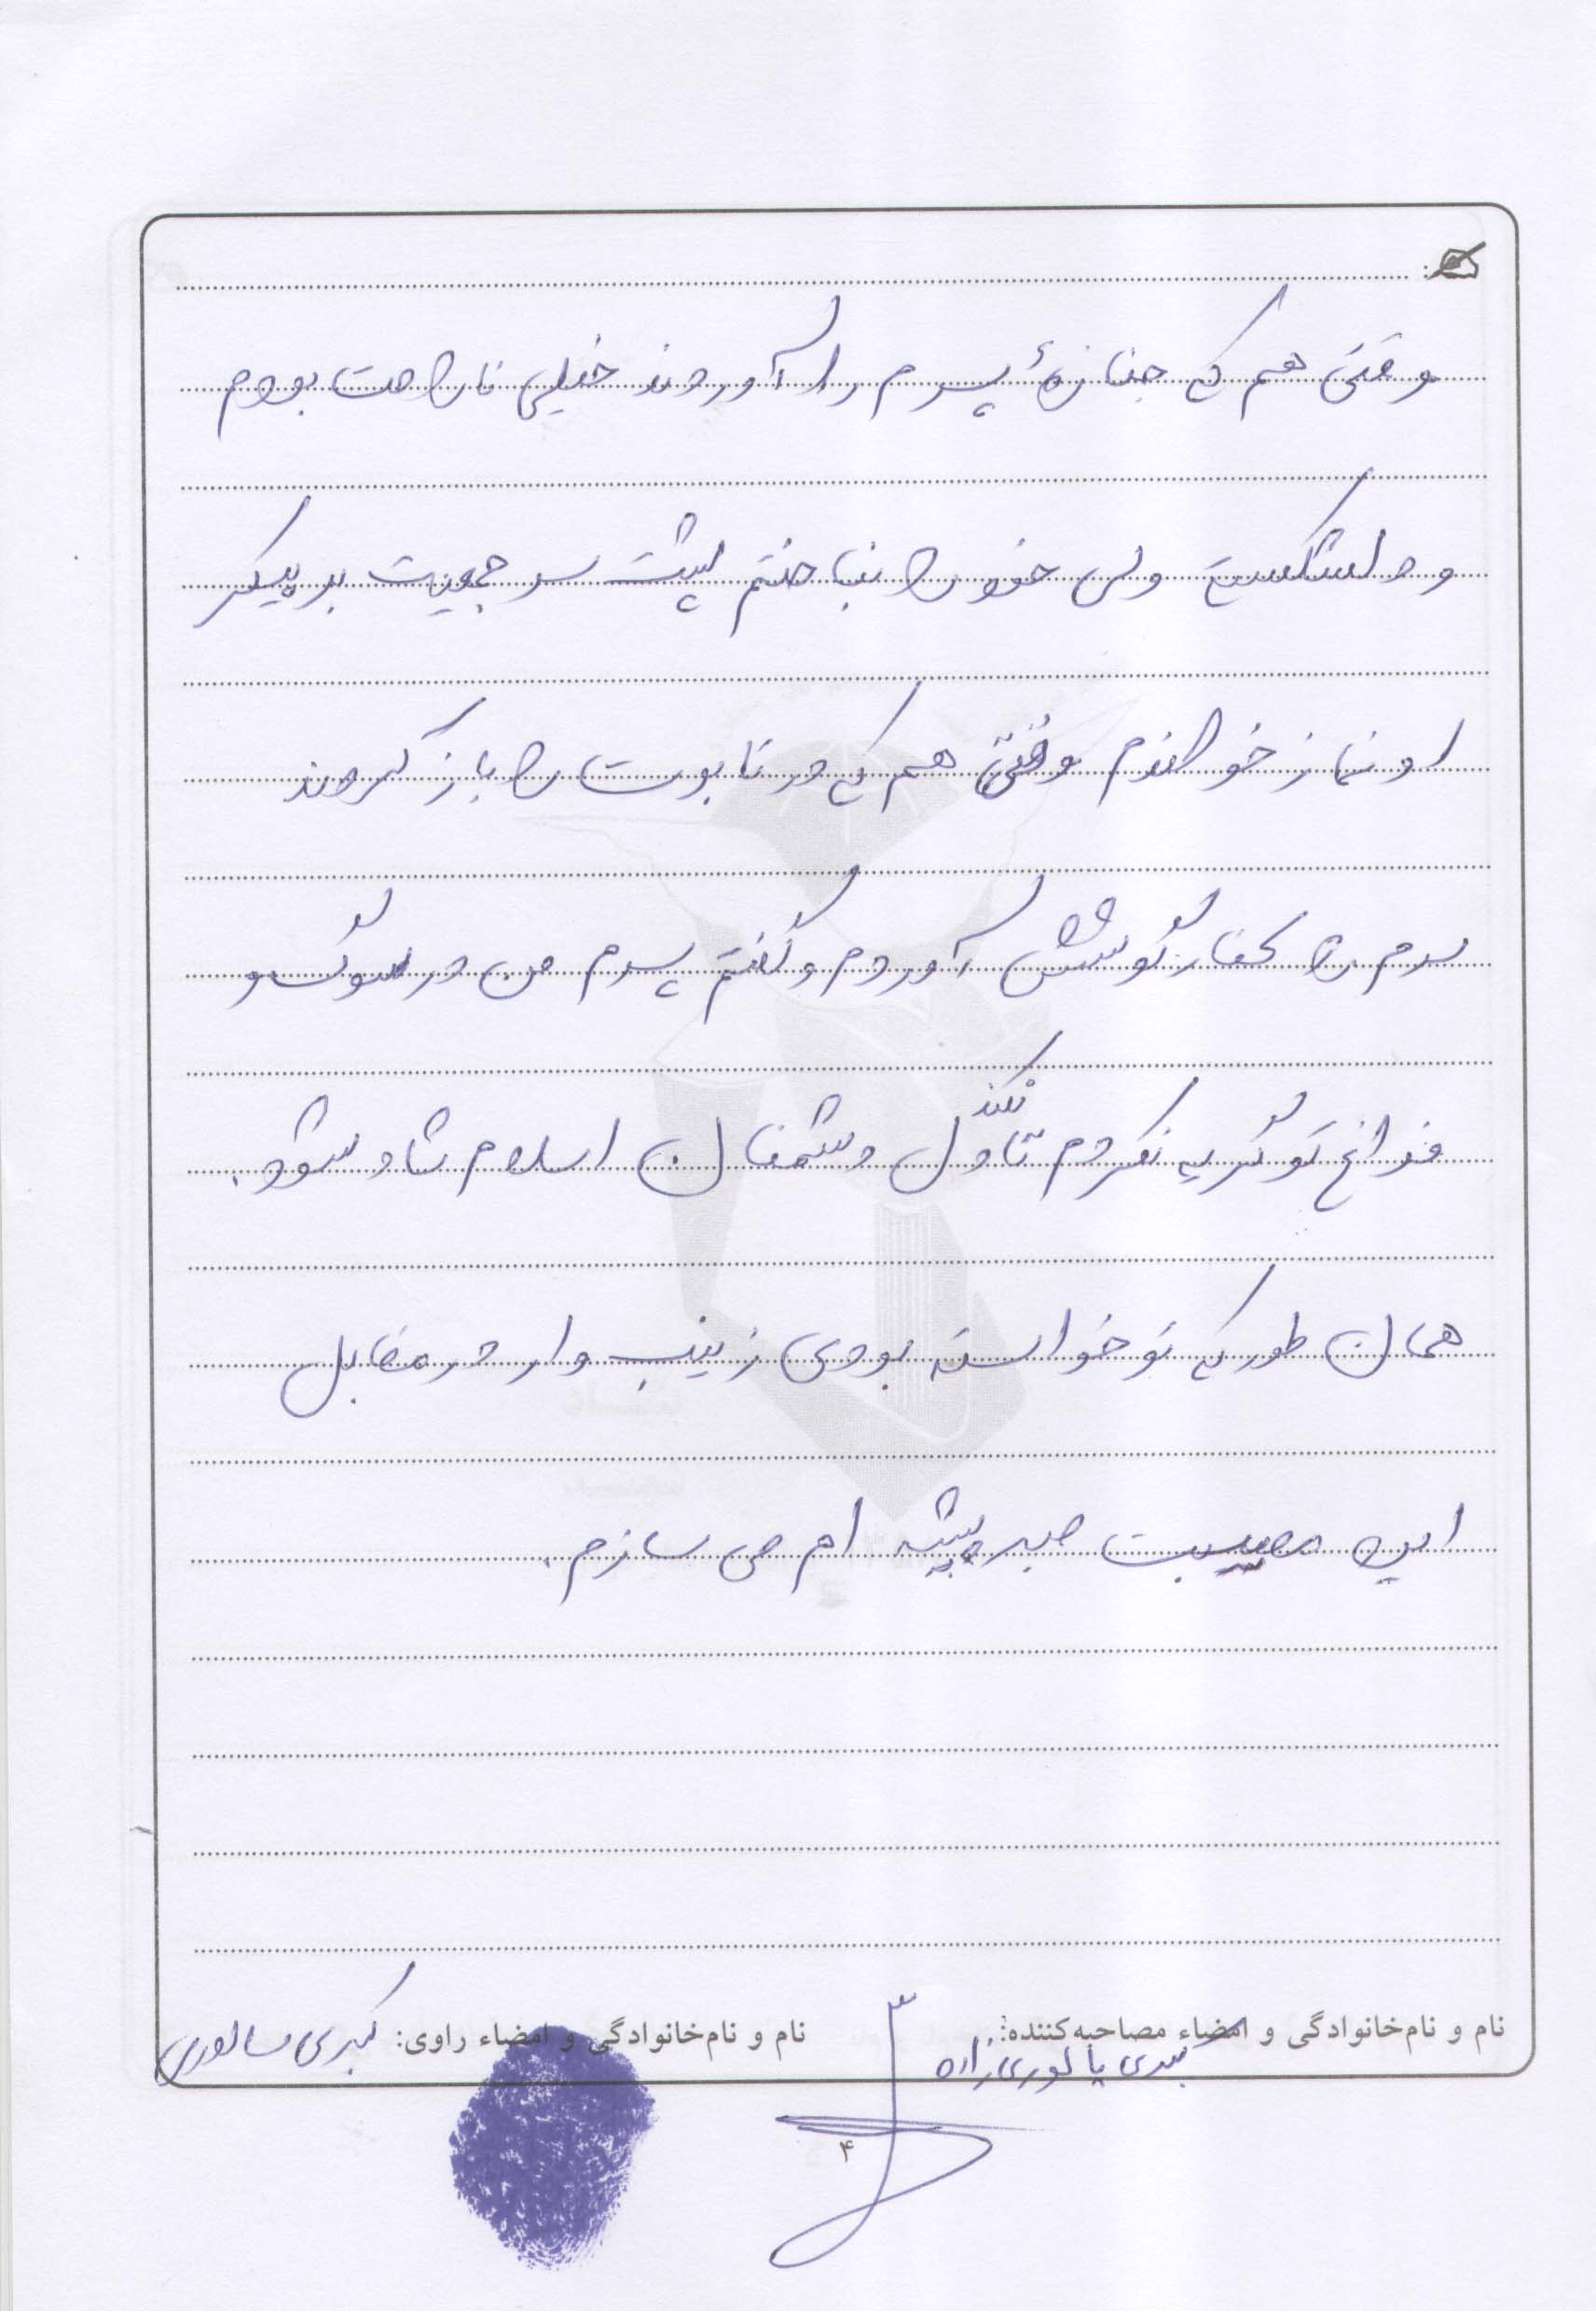 وقتی هم که جنازهٔ پسرم را آوردند خیلی ناراحت بودم
و دلشکسته ولی خود را نباختم پشت سر جمعیت بر پیکر
او نماز خواندم وقتی هم که در تابوت را باز کردند
سرم را کنار گوشش آوردم و گفتم پسرم من در سوگ و
فراغ تو گریه نکردم تا نکند دل دشمنان اسلام شاد شود.
همان طور که تو خواسته بودی زینب وار در مقابل
این مصیبت صبر پیشه ام می سازم.
نام و نام‌خانوادگی و امضاء مصاحبه‌کننده: نام و نام‌خانوادگی و امضاء راوی: کبری سالوری
۴